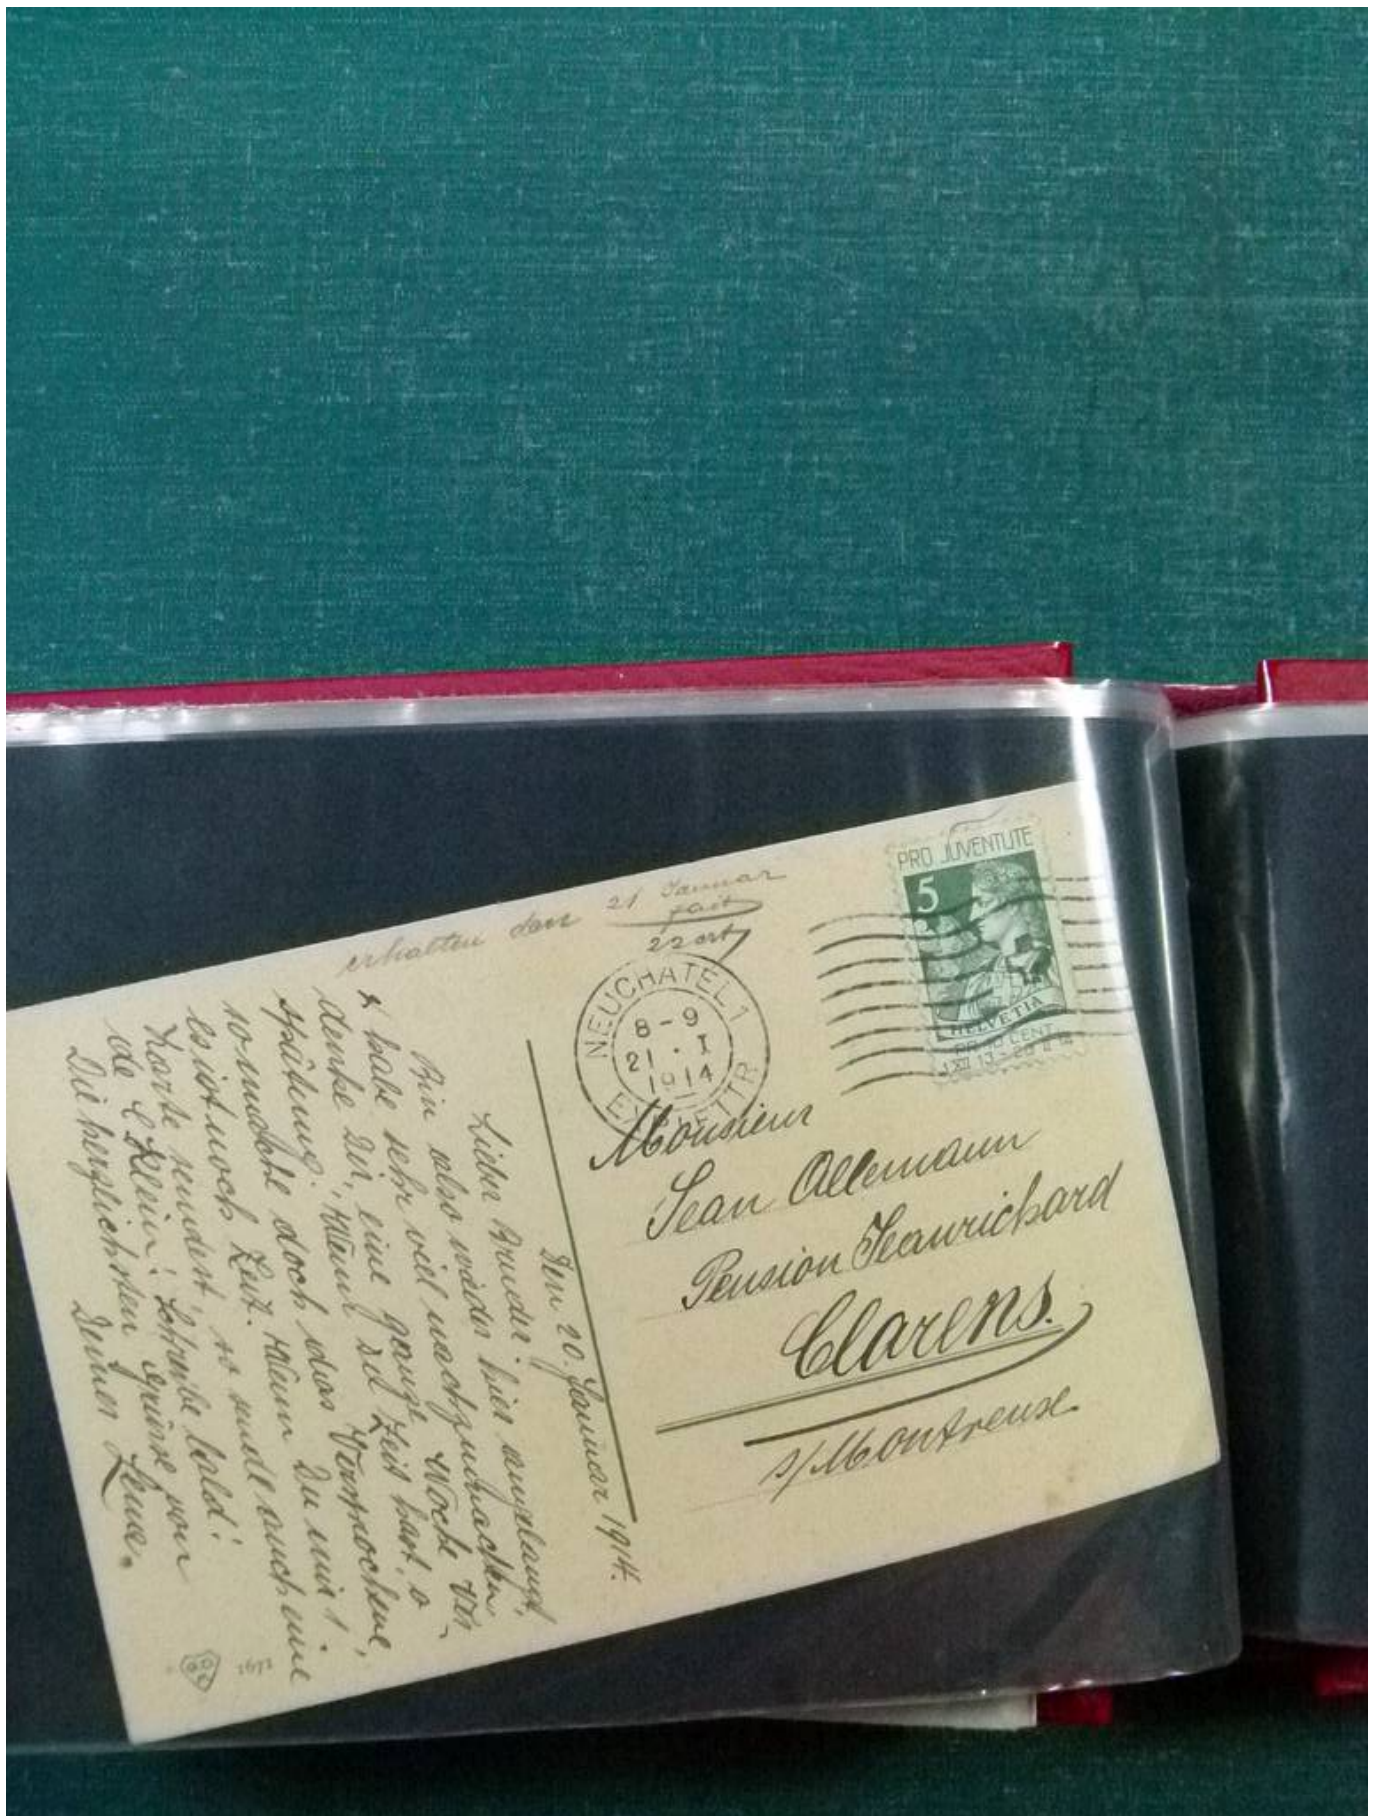 erhalten den 21 Januar
fait
22 ert
PRO JUVENTUTE
5
HELVETIA
10 CENT.
1 XII 13 - 28 II 14
NEUCHATEL 1
8-9
21.I
1914
EXP. LETTR.
Monsieur
Jean Allemann
Pension Jeanrichard
Clarens.
s/Montreux.
Den 20. Januar 1914.
Lieber Bruder!
Bin also wieder hier angelangt,
& habe sehr viel nachzumachen,
denke Dir, eine ganze Woche Ver-
spätung. Wenn Du Zeit hast, o
so mache doch das Versprochene,
es ist noch Zeit. Wenn Du mir 1.
Karte sendest, so sende auch eine
de Schreibe bald!
Die herzlichsten Grüsse von
Deiner Lena.
1671